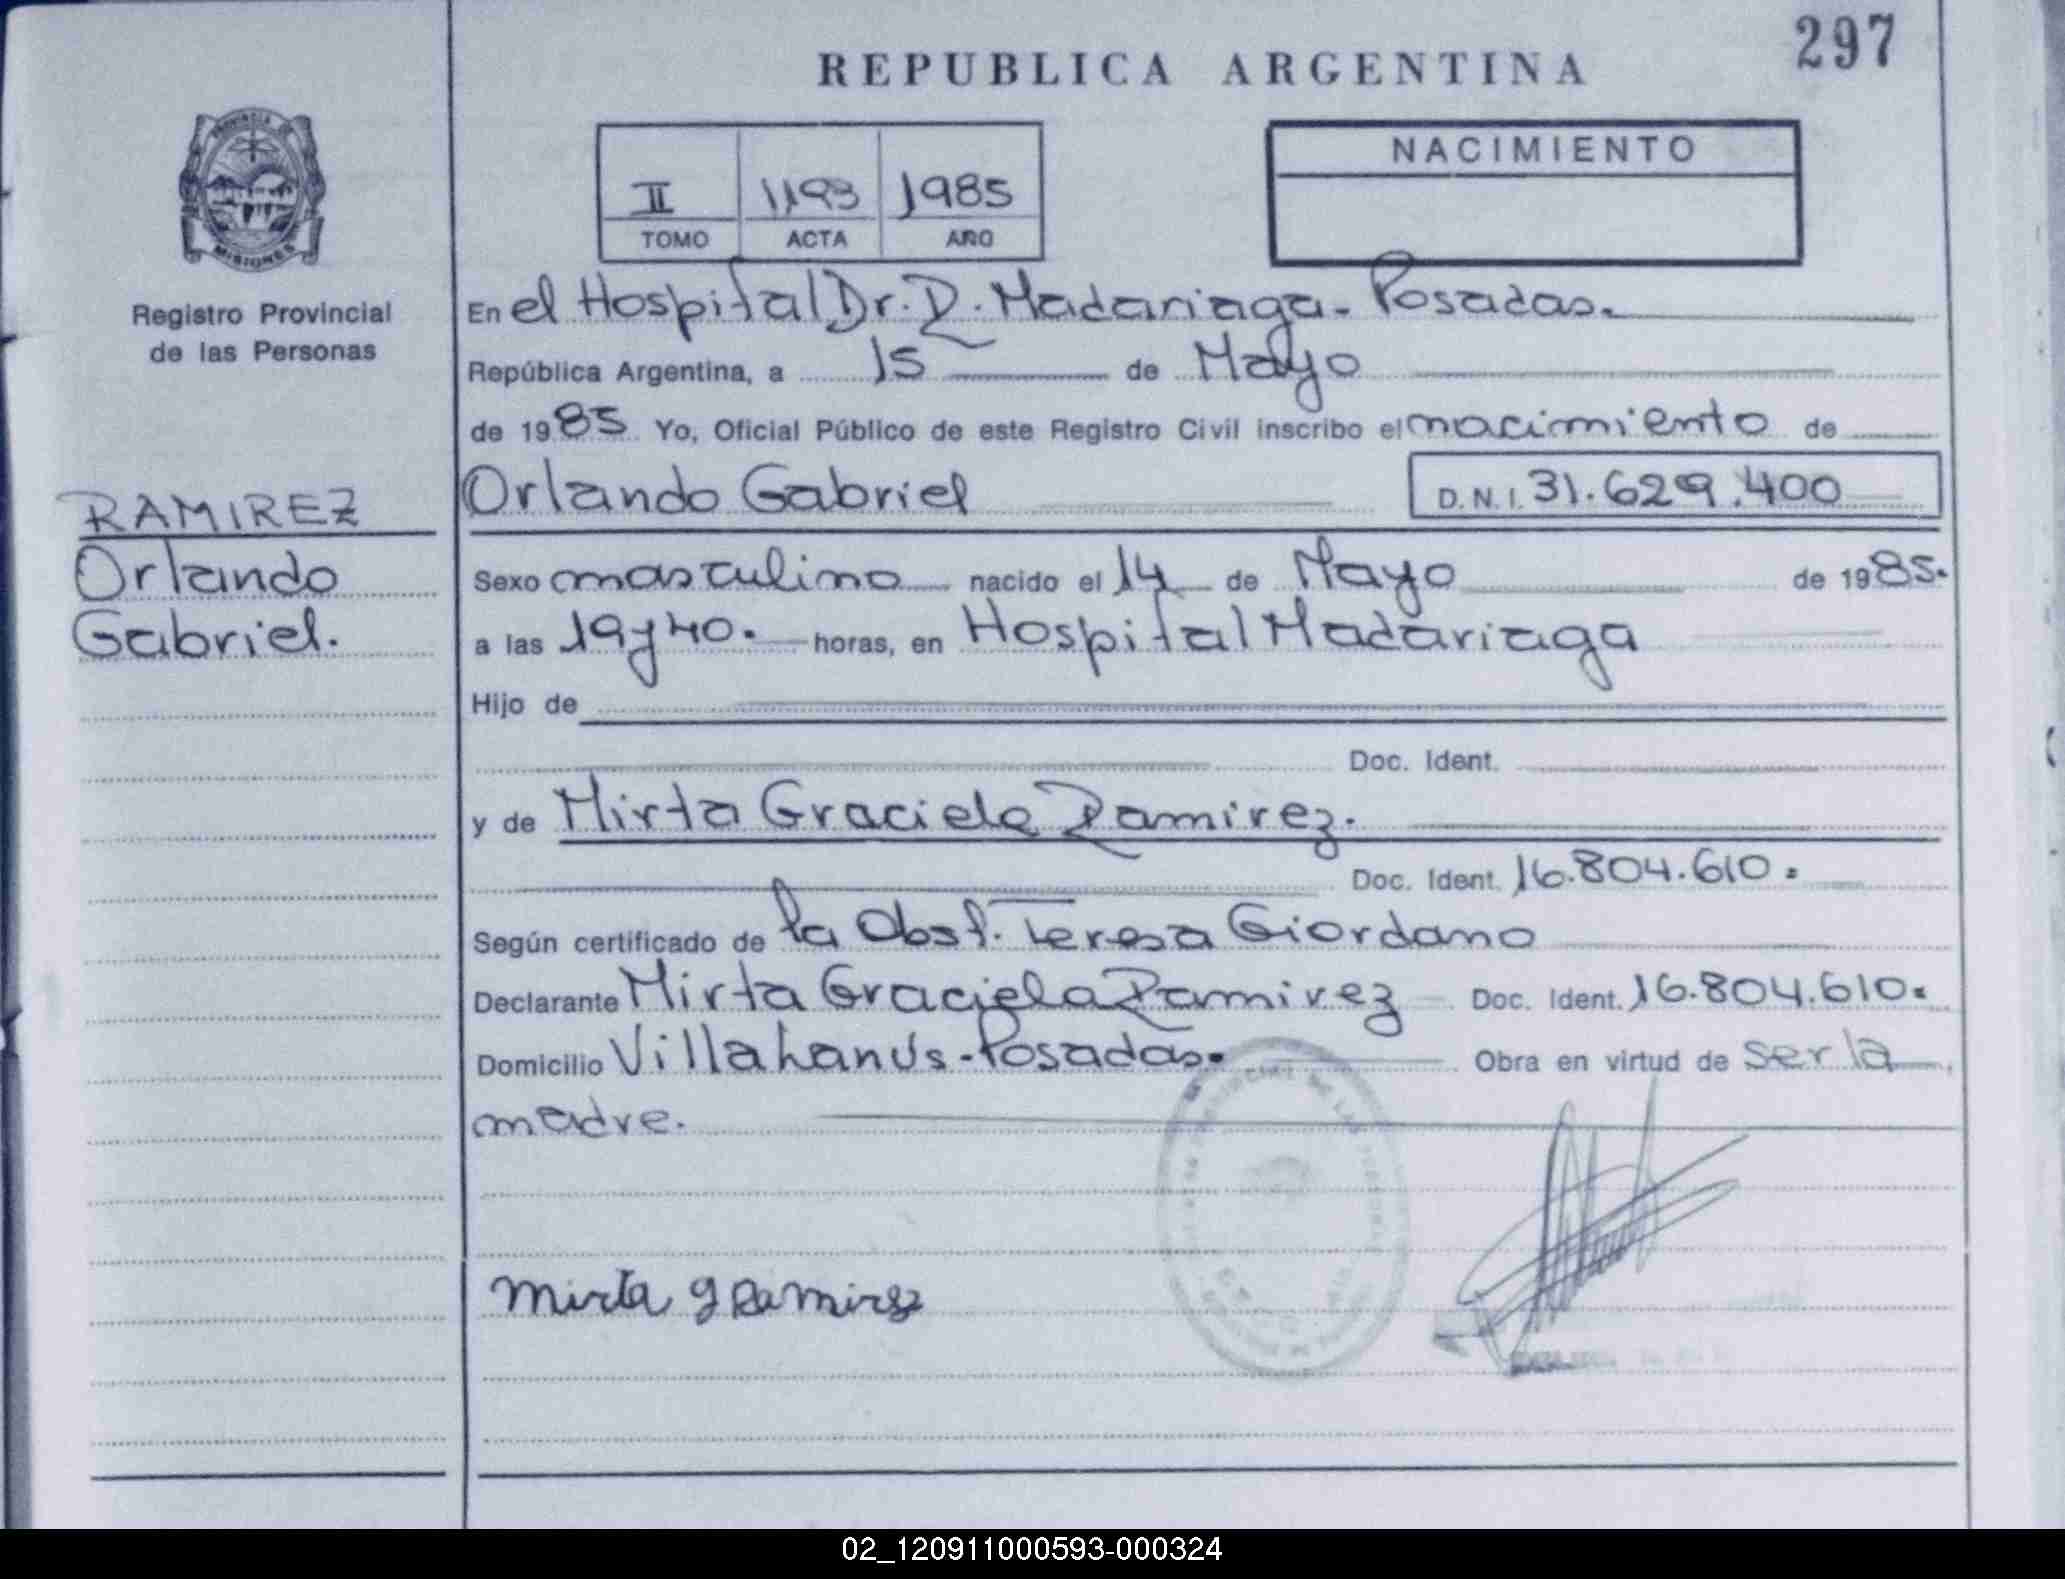 297
REPUBLICA ARGENTINA
PROVINCIA DE
MISIONES
Registro Provincial
de las Personas
II 1193 1985
TOMO ACTA AÑO
NACIMIENTO
En el Hospital Dr. R. Madariaga - Posadas.
República Argentina, a 15 de Mayo
de 1985 Yo, Oficial Público de este Registro Civil inscribo el nacimiento de
RAMIREZ
Orlando
Gabriel.
Orlando Gabriel D.N.I. 31.629.400
Sexo masculino nacido el 14 de Mayo de 1985.
a las 19 y 40. horas, en Hospital Madariaga
Hijo de
Doc. Ident.
y de Mirta Graciela Ramirez.
Doc. Ident. 16.804.610.
Según certificado de la Obst. Teresa Giordano
Declarante Mirta Graciela Ramirez Doc. Ident. 16.804.610.
Domicilio Villa Lanus - Posadas. Obra en virtud de ser la
madre.
Mirta G Ramirez
02_120911000593-000324